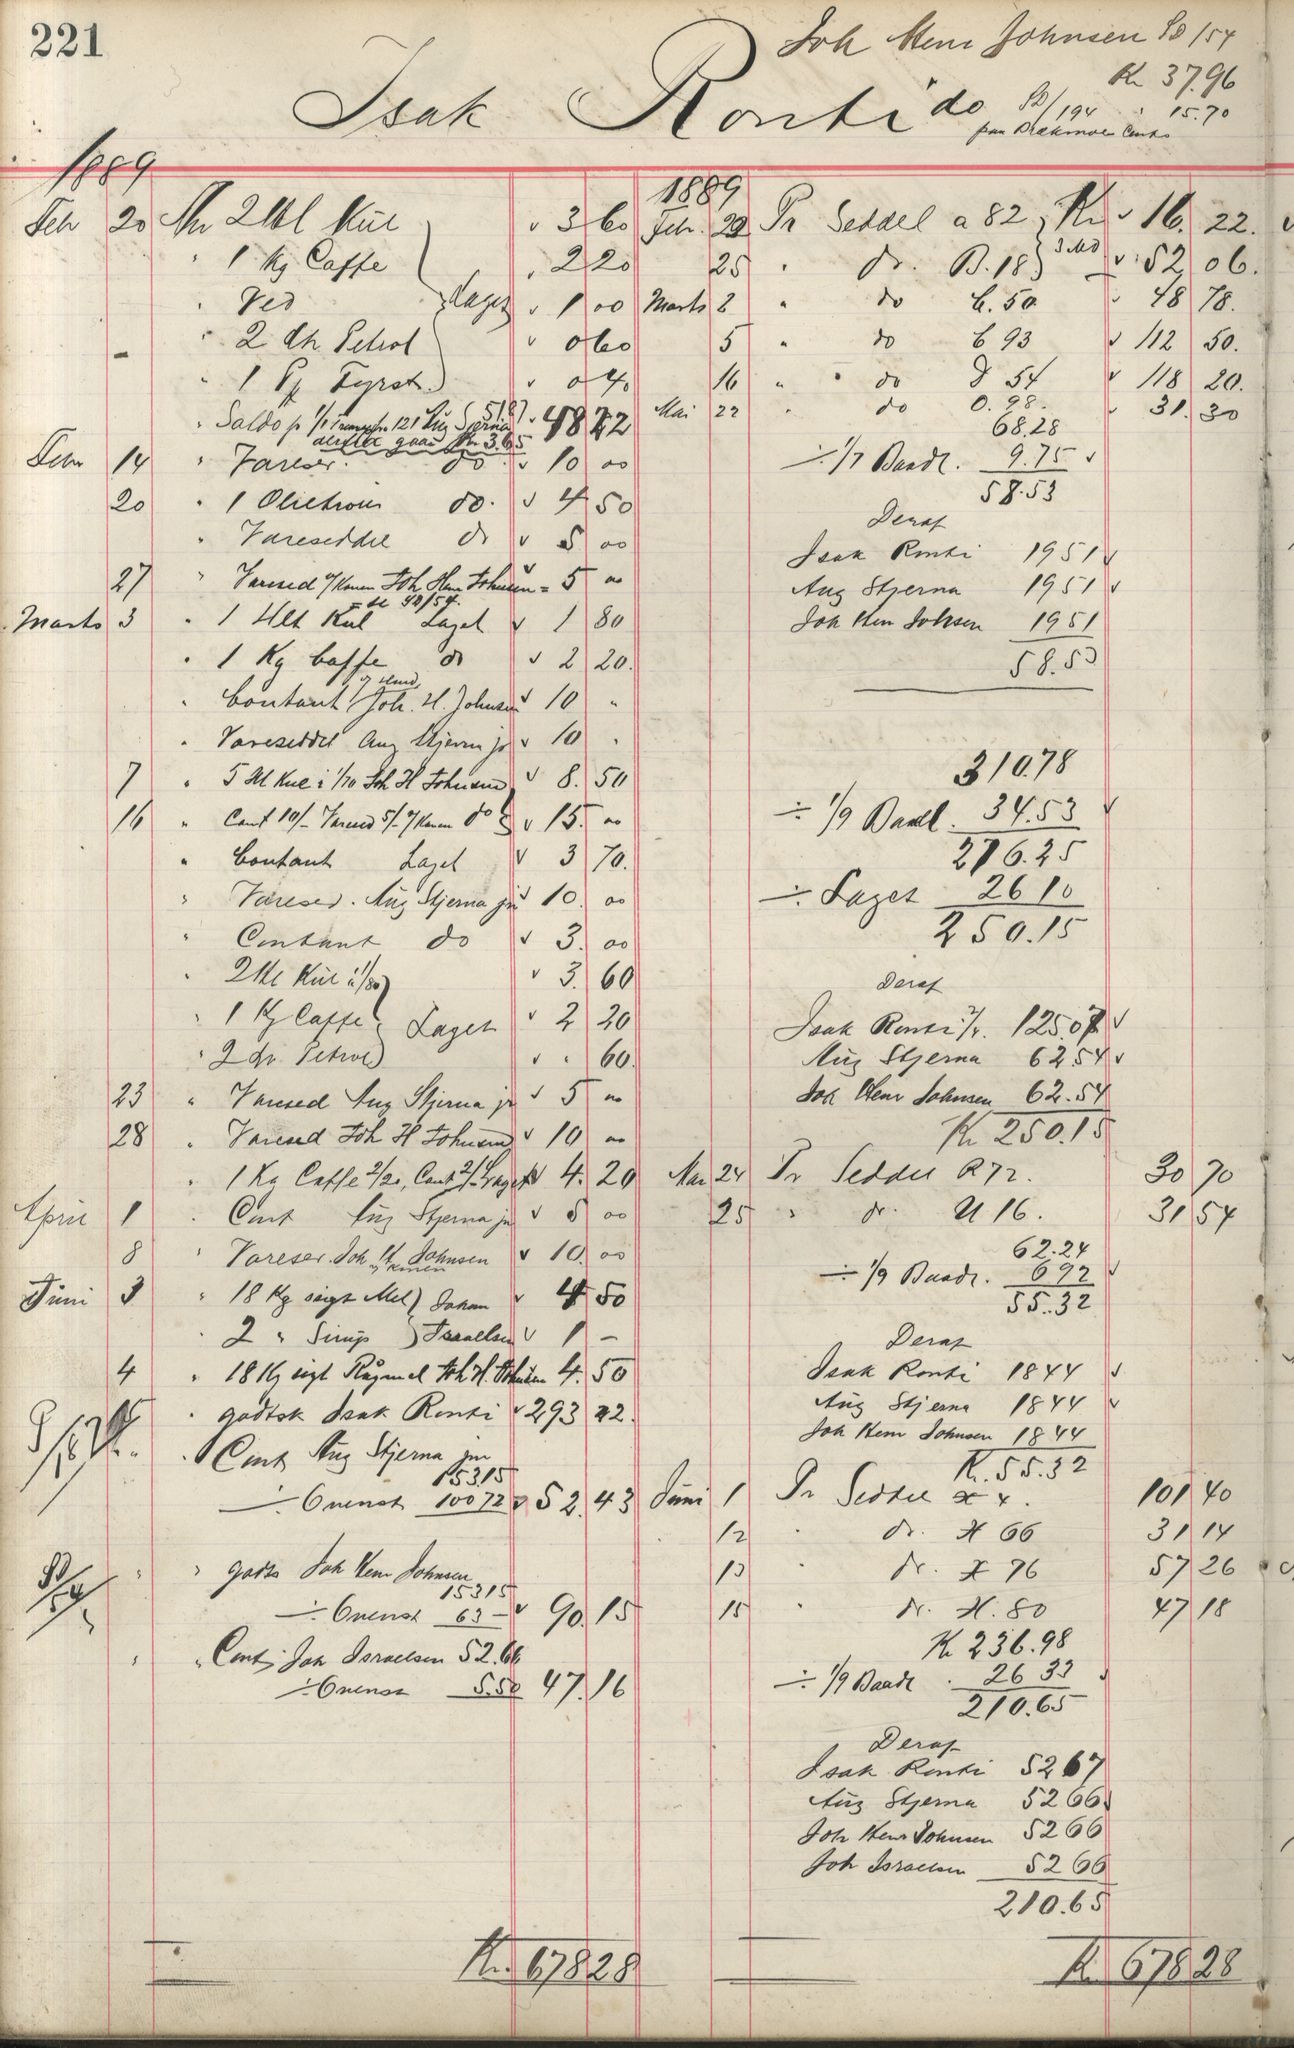 221
Joh Henr Johnsen SD/154
Kr 37.96
Isak Ronti
do SD/194 " 15.70
1889
Febr 20 An 2 Hl Kul v 3 60
" 1 Kg Caffe " 2 20
" Ved Laget v 1 00
" 2 Ltr Petrol v 0 60
" 1 Pf Fyrst. v 0 40
" Saldo pr 1/1 Aug Stjerna 48 22
Kr 3.65
Febr 14 " Vareser. do v 10 00
20 " 1 Olietroie do. v 4 50
" Vareseddel do v 5 00
27 " Varesed v/Konen Joh Henr Johnsen = 5 00
SD/54.
Marts 3 " 1 Hlt Kul Laget v 1 80
" 1 Kg Caffe do v 2 20.
" Contant Joh. H. Johnsen v 10 "
" Vareseddel Aug Stjerna jr v 10 "
7 " 5 Hl Kul à 1/70 Joh H Johnsen v 8. 50
16 " Cont 10/- Varesed 5/- v/Konen do v 15. 00
" Contant Laget v 3 70.
" Vareser. Aug Stjerna jr 10. 00
" Contant do v 3. 00
" 2 Hl Kul à 1/80 v 3. 60
" 1 Kg Caffe Laget v 2 20
" 2 Ltr Petrol v " 60.
23 " Varesed Aug Stjerna jr v 5 00
28 " Varesed Joh H Johnsen v 10 00
" 1 Kg Caffe 2/20, Cont 2/- Laget v 4. 20
April 1 " Cont Aug Stjerna jr v 5 00
8 " Vareser. Joh H Johnsen v 10. 00
v/konen
Juni 3 " 18 Kg sigt Mel Johan v 4 50
" 2 " Sirup Israelsen v 1 -
4 " 18 Kg sigt Rugmel Joh H. Johnsen 4. 50
" godtsk Isak Ronti v 293 22.
" Cont Aug Stjerna jr
153.15
÷ Ovenst 100 72 v 52. 43
SD/54 " " godts Joh Henr Johnsen
153 15
÷ Ovenst 63 - v 90. 15
" " Cont Joh Israelsen 52.66
÷ Ovenst 5.50 47. 16
Kr. 678 28
1889
Febr. 22 Pr Seddel a 82 Kr v 16. 22.
25 " do. B. 18 v 52 06.
Marts 2 " do C. 50 v 48 78.
5 " do C 93 v 112 50.
16 " do D 54 v 118 20.
Mai 22 " do O. 98. v 31. 30
68.28
÷ 1/7 Baadl. 9.75 v
58.53
Deraf
Isak Ronti 19 51 v
Aug Stjerna 19 51 v
Joh Henr Johnsen 19 51
58.53
310.78
÷ 1/9 Baadl. 34.53 v
276.25
÷ Laget 26 10
250.15
Deraf
Isak Ronti 2/4. 125.07 v
Aug Stjerna 62.54 v
Joh Henr Johnsen 62.54
Kr 250.15
Mai 24 Pr Seddel R 72. 30 70
25 " do. U 16. 31 54
62.24
÷ 1/9 Baadl. 6 92 v
55.32
Deraf
Isak Ronti 18 44 v
Aug Stjerna 18 44 v
Joh Henr Johnsen 18 44
Kr. 55.32
Juni 1 Pr Seddel X 4. 101 40
12 " do. X 66 31 14
13 " do. X 76 57 26
15 " do. X. 80 47 18
Kr 236.98
÷ 1/9 Baadl. 26 33 v
210.65
Deraf
Isak Ronti 52 67
Aug Stjerna 52 66 v
Joh Henr Johnsen 52 66
Joh Israelsen 52 66
210.65
Kr 678 28